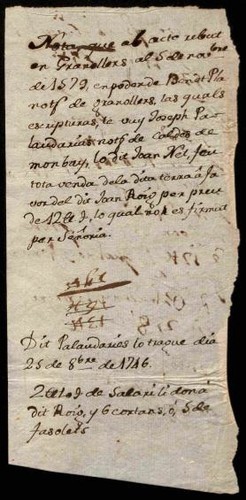 Nota que ab acte rebut
en Granollers als 5 de nobre
de 1579, en poder de Benet Pla
not.s de granollers, las quals
escripturas, te vuy Joseph Pa-
laudarias not.s de Caldes de
monbuy, lo dit Joan Nel, feu
tota venda de la dita terra á fa
vor del dit Joan Roig per preu
de 126 lo qual no es firmat
per Señoria.
Dit Palaudarias lo trague dia
25 de 8bre de 1746.
de Salari li doná
dit Roig, y 6 cortans, ó, 5 de
fasolets